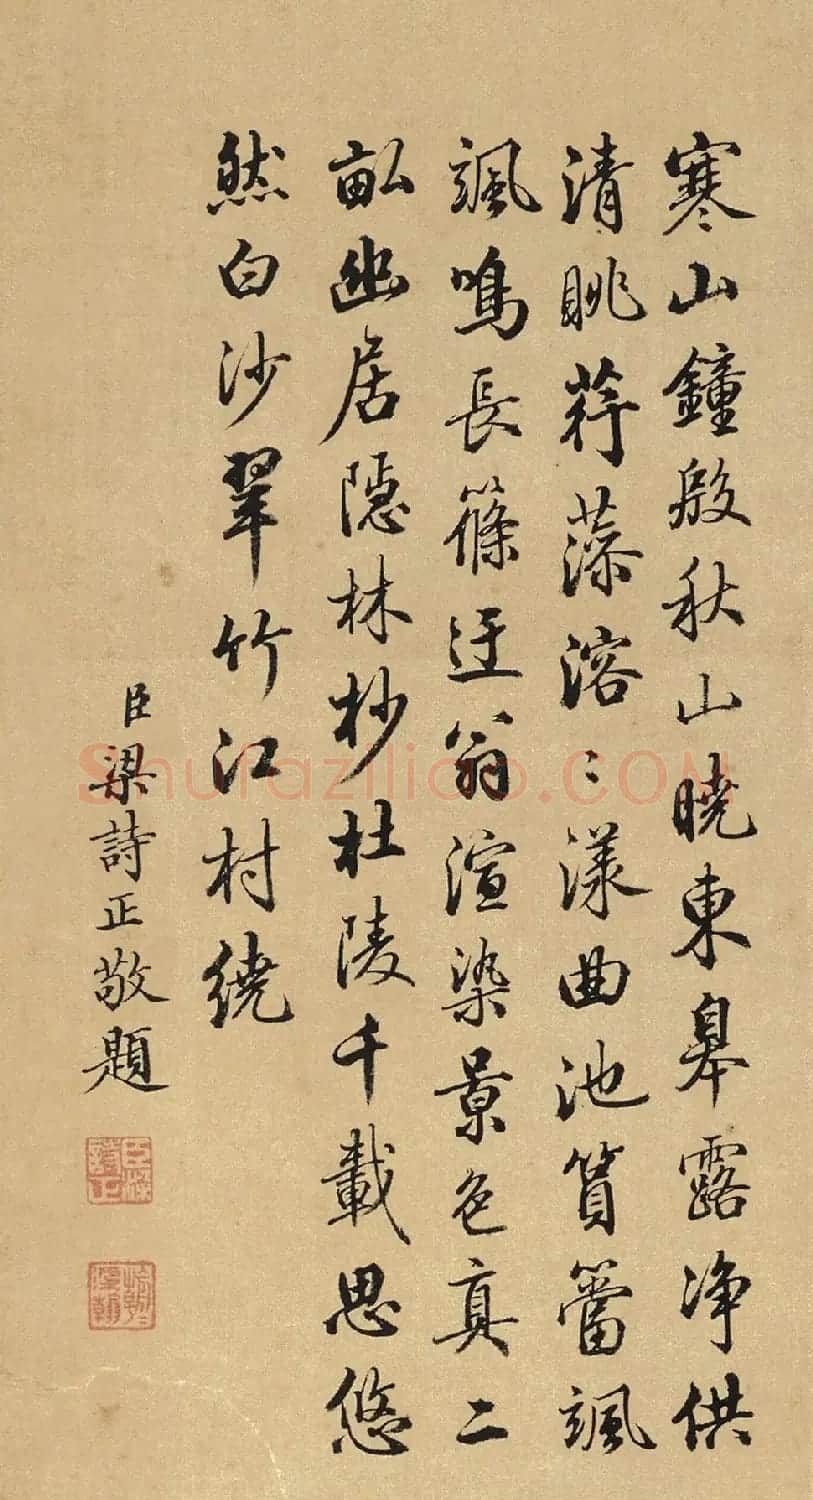 寒山鐘殷秋山曉東皋露净供
清眺荇藻溶〻漾曲池篔簹颯
颯鳴長篠迂翁渲染景色真二
畝幽居隱林杪杜陵千載思悠
然白沙翠竹江村繞
臣梁詩正敬題
臣梁詩正
Shufaziliao.COM